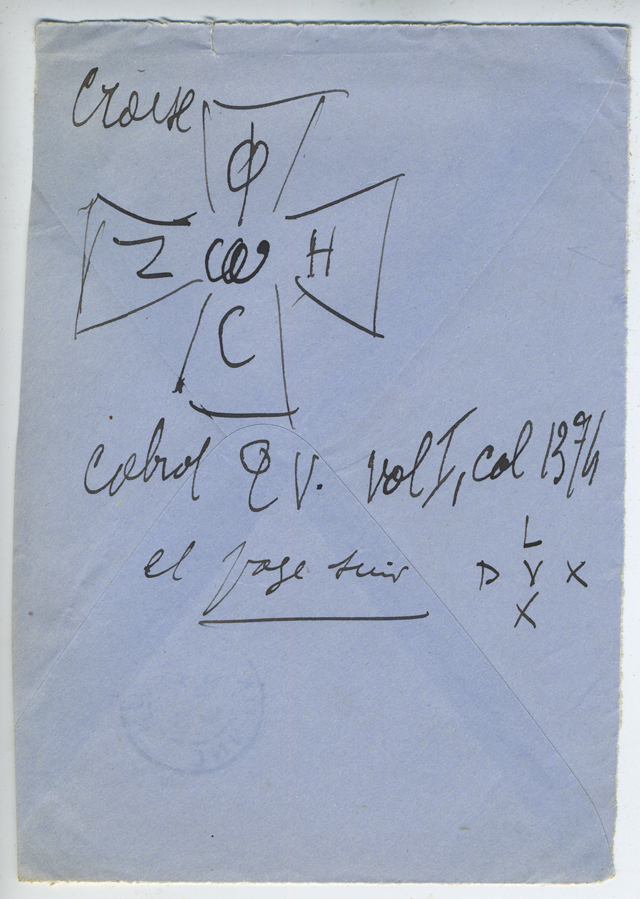 croise
Φ
Z ω H
C
Cabrol Q V. vol I, col 1374
et page suiv
L
D V X
X